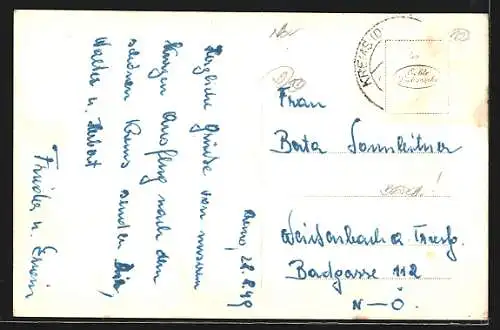 Krems, 28.8.49
Herzliche Grüße von unserem
kurzen Ausflug nach dem
schönen Krems senden Dir,
Walter u. Herbert
Frieda u. Erwin
KREMS (D
Echte
Frau
Berta Sonnleitner
Weissenbach a. Triesg.
Badgasse 112
N – Ö.